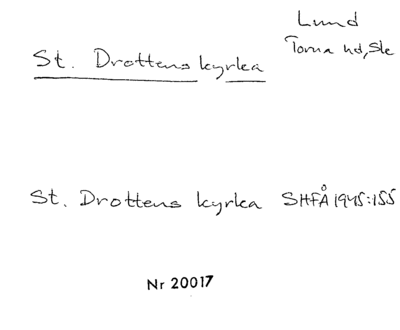 Lund
St. Drottens kyrka
Torna hd, Ske
St. Drottens kyrka SHFÅ 1945:155
Nr 20017